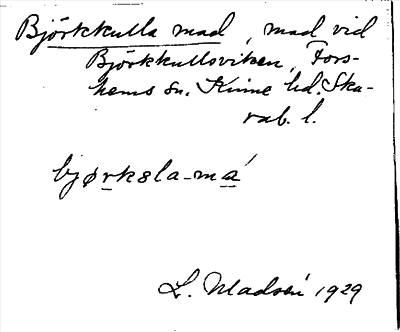 Björkkulla mad, mad vid
Björkkullsviken, Fors-
hems sn. Kinne hd. Ska-
rab. l.
bjørk8la-má
L. Madsén 1929